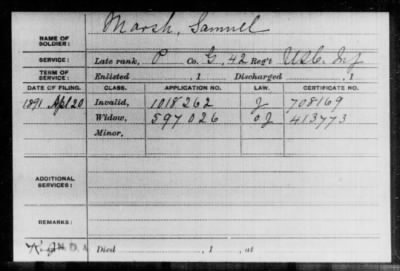 Marsh, Samuel
NAME OF SOLDIER:
SERVICE: Late rank, P Co. G, 42 Reg't U.S.C. Inf
TERM OF SERVICE: Enlisted , 1 Discharged , 1
DATE OF FILING. CLASS. APPLICATION NO. LAW. CERTIFICATE NO.
1891 Apl 20 Invalid, 1018262 J 708169
Widow, 597026 J 413773
Minor,
ADDITIONAL SERVICES:
REMARKS:
Died , 1 , at